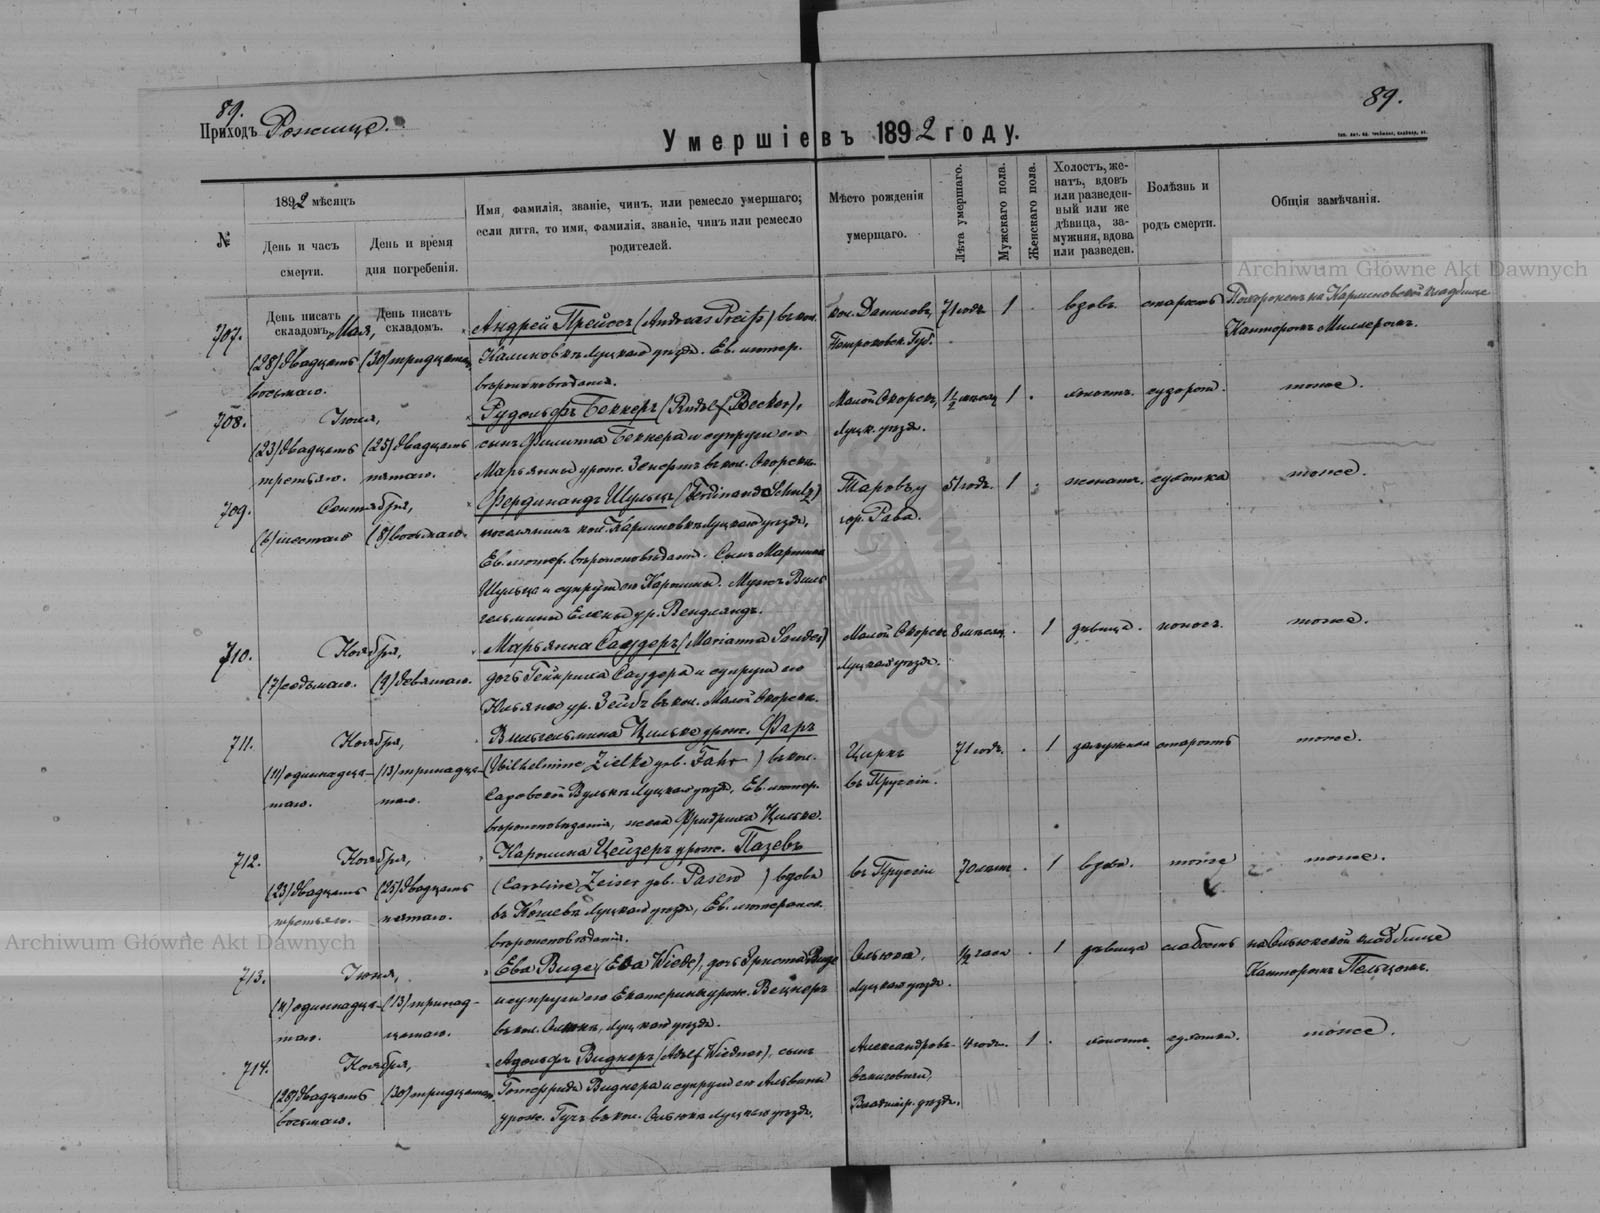 89.
89.
Приходъ Рожище.
Умершіе въ 1892 году.
№
1892 мѣсяцъ
День и часъ смерти.
День и время дня погребенія.
Имя, фамилія, званіе, чинъ, или ремесло умершаго;
если дитя, то имя, фамилія, званіе, чинъ или ремесло
родителей.
Мѣсто рожденія
умершаго.
Лѣта умершаго.
Мужскаго пола.
Женскаго пола.
Холостъ, же-
натъ, вдовъ
или разведен-
ный или же
дѣвица, за-
мужняя, вдова
или разведен.
Болѣзнь и
родъ смерти.
Общія замѣчанія.
Archiwum Główne Akt Dawnych
День писать
складомъ.
День писать
складомъ.
707.
Мая,
(28) двадцать
восьмаго.
(30) тридцатаго
Андрей Прейсъ (Andreas Preiß) въ кол.
Калиновкѣ Луцкаго уѣзда. Ев. лютер.
вѣроисповѣданія.
кол. Даниловъ,
Петроковск. Губ.
71 годъ
1
вдовъ.
старость
Похороненъ на Калиновской кладбище
Канторомъ Миллеромъ.
708.
Іюня,
(23) двадцать
третьяго.
(25) двадцать
пятаго.
Рудольфъ Беккеръ (Rudolf Becker),
сынъ Филиппа Беккера и супруги его
Марьянны урож. въ кол.
Луцк. уѣзда.
1½ мѣсяц
1
холостъ.
судороги.
тоже.
709.
Сентября,
(6) шестаго
(8) восьмаго.
Фердинандъ Шульцъ (Ferdinand Schulz)
поселянинъ кол. Луцкаго уѣзда,
Ев. лютер. вѣроисповѣдан. Сынъ Мартина
Шульца и супруги его Каролины. Мужъ Виль
гельмины Елены ур. Вендландъ.
гор. Рава.
51 годъ.
1
женатъ.
сухотка
тоже.
710.
Ноября,
(7) седьмаго.
(9) девятаго.
Марьянна Саудеръ (Marianna Sauder)
дочь Гейнриха Саудера и супруги его
Юльяны ур. Зейбъ въ кол. Малой
Луцкаго уѣзда.
8 мѣсяц.
1
дѣвица.
поносъ.
тоже.
711.
Ноября,
(11) одиннадца-
таго.
(13) тринадца-
таго.
Вильгельмина Цильке урож. Фаръ
(Wilhelmine Zielke geb. Fahr) въ кол.
Луцкаго уѣзда, Ев. лютер.
вѣроисповѣданія, жена Фридриха Цильке.
Циркъ
въ Пруссіи.
71 годъ.
1
замужняя
старость
тоже.
712.
Ноября,
(23) двадцать
третьяго.
(25) двадцать
пятаго.
Каролина Цейзеръ урож. Пазевъ
(Caroline Zeiser geb. Pasew) вдова
въ Луцкаго уѣзда, Ев. лютеранск.
вѣроисповѣданія.
въ Пруссіи
70 лѣтъ.
1
вдова.
тоже
тоже.
Archiwum Główne Akt Dawnych
713.
Іюня,
(11) одиннадца-
таго.
(13) тринад-
цатаго.
Ева Виде (Eva Wiede), дочь Эрнста Виде
и супруги его Екатерины урож.
въ кол. Луцкаго уѣзда.
Луцкаго уѣзда.
½ часа
1
дѣвица
слабость
на кладбище
Канторомъ Пельцомъ.
714.
Ноября,
(28) двадцать
восьмаго.
(30) тридцатаго.
Адольфъ Виднеръ (Adolf Wiedner), сынъ
Готфрида Виднера и супруги его Альвины
урож. Гучъ въ кол. Луцкаго уѣзда.
Александровъ
Владимір. уѣзда.
4 года.
1
холостъ.
сухотка.
тоже.